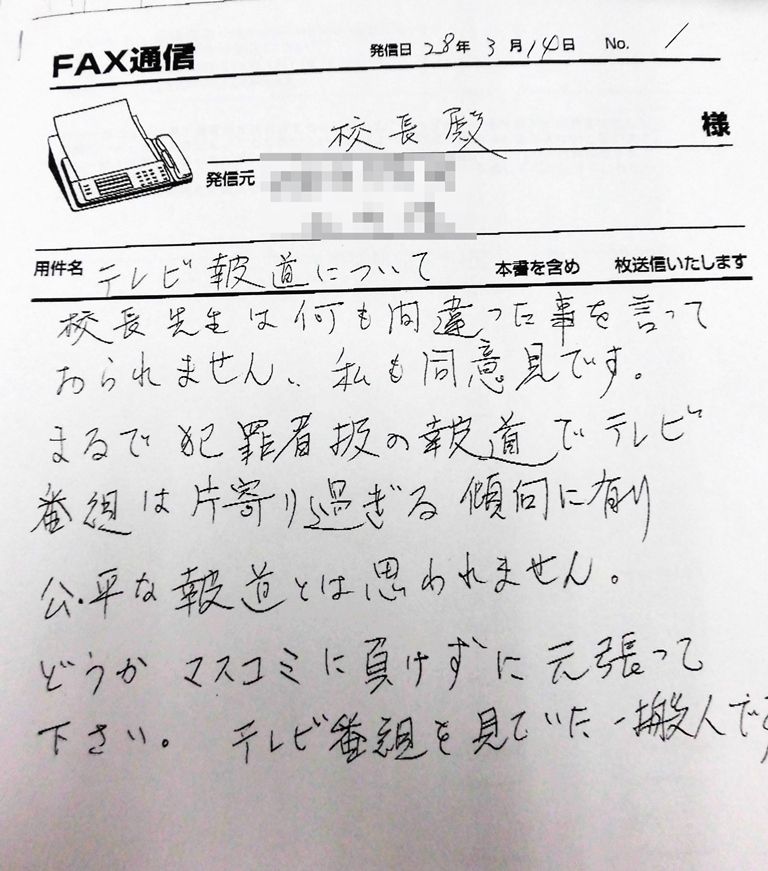 FAX通信
発信日 28年 3月14日 No. 1
校長殿 様
発信元
用件名 テレビ報道について 本書を含め 枚送信いたします
校長先生は何も間違った事を言って
おられません、私も同意見です。
まるで犯罪者扱の報道でテレビ
番組は片寄り過ぎる傾向に有り
公・平な報道とは思われません。
どうかマスコミに負けずに元張って
下さい。 テレビ番組を見ていた一搬人です